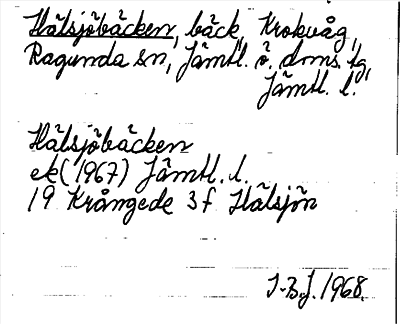 Hälsjöbäcken, bäck, Krokvåg,
Ragunda sn, Jämtl. ö. doms. tg,
Jämtl. l.
Hälsjöbäcken
ek (1967) Jämtl. l.
19 Krångede 3f Hälsjön
I-B.J. 1968.